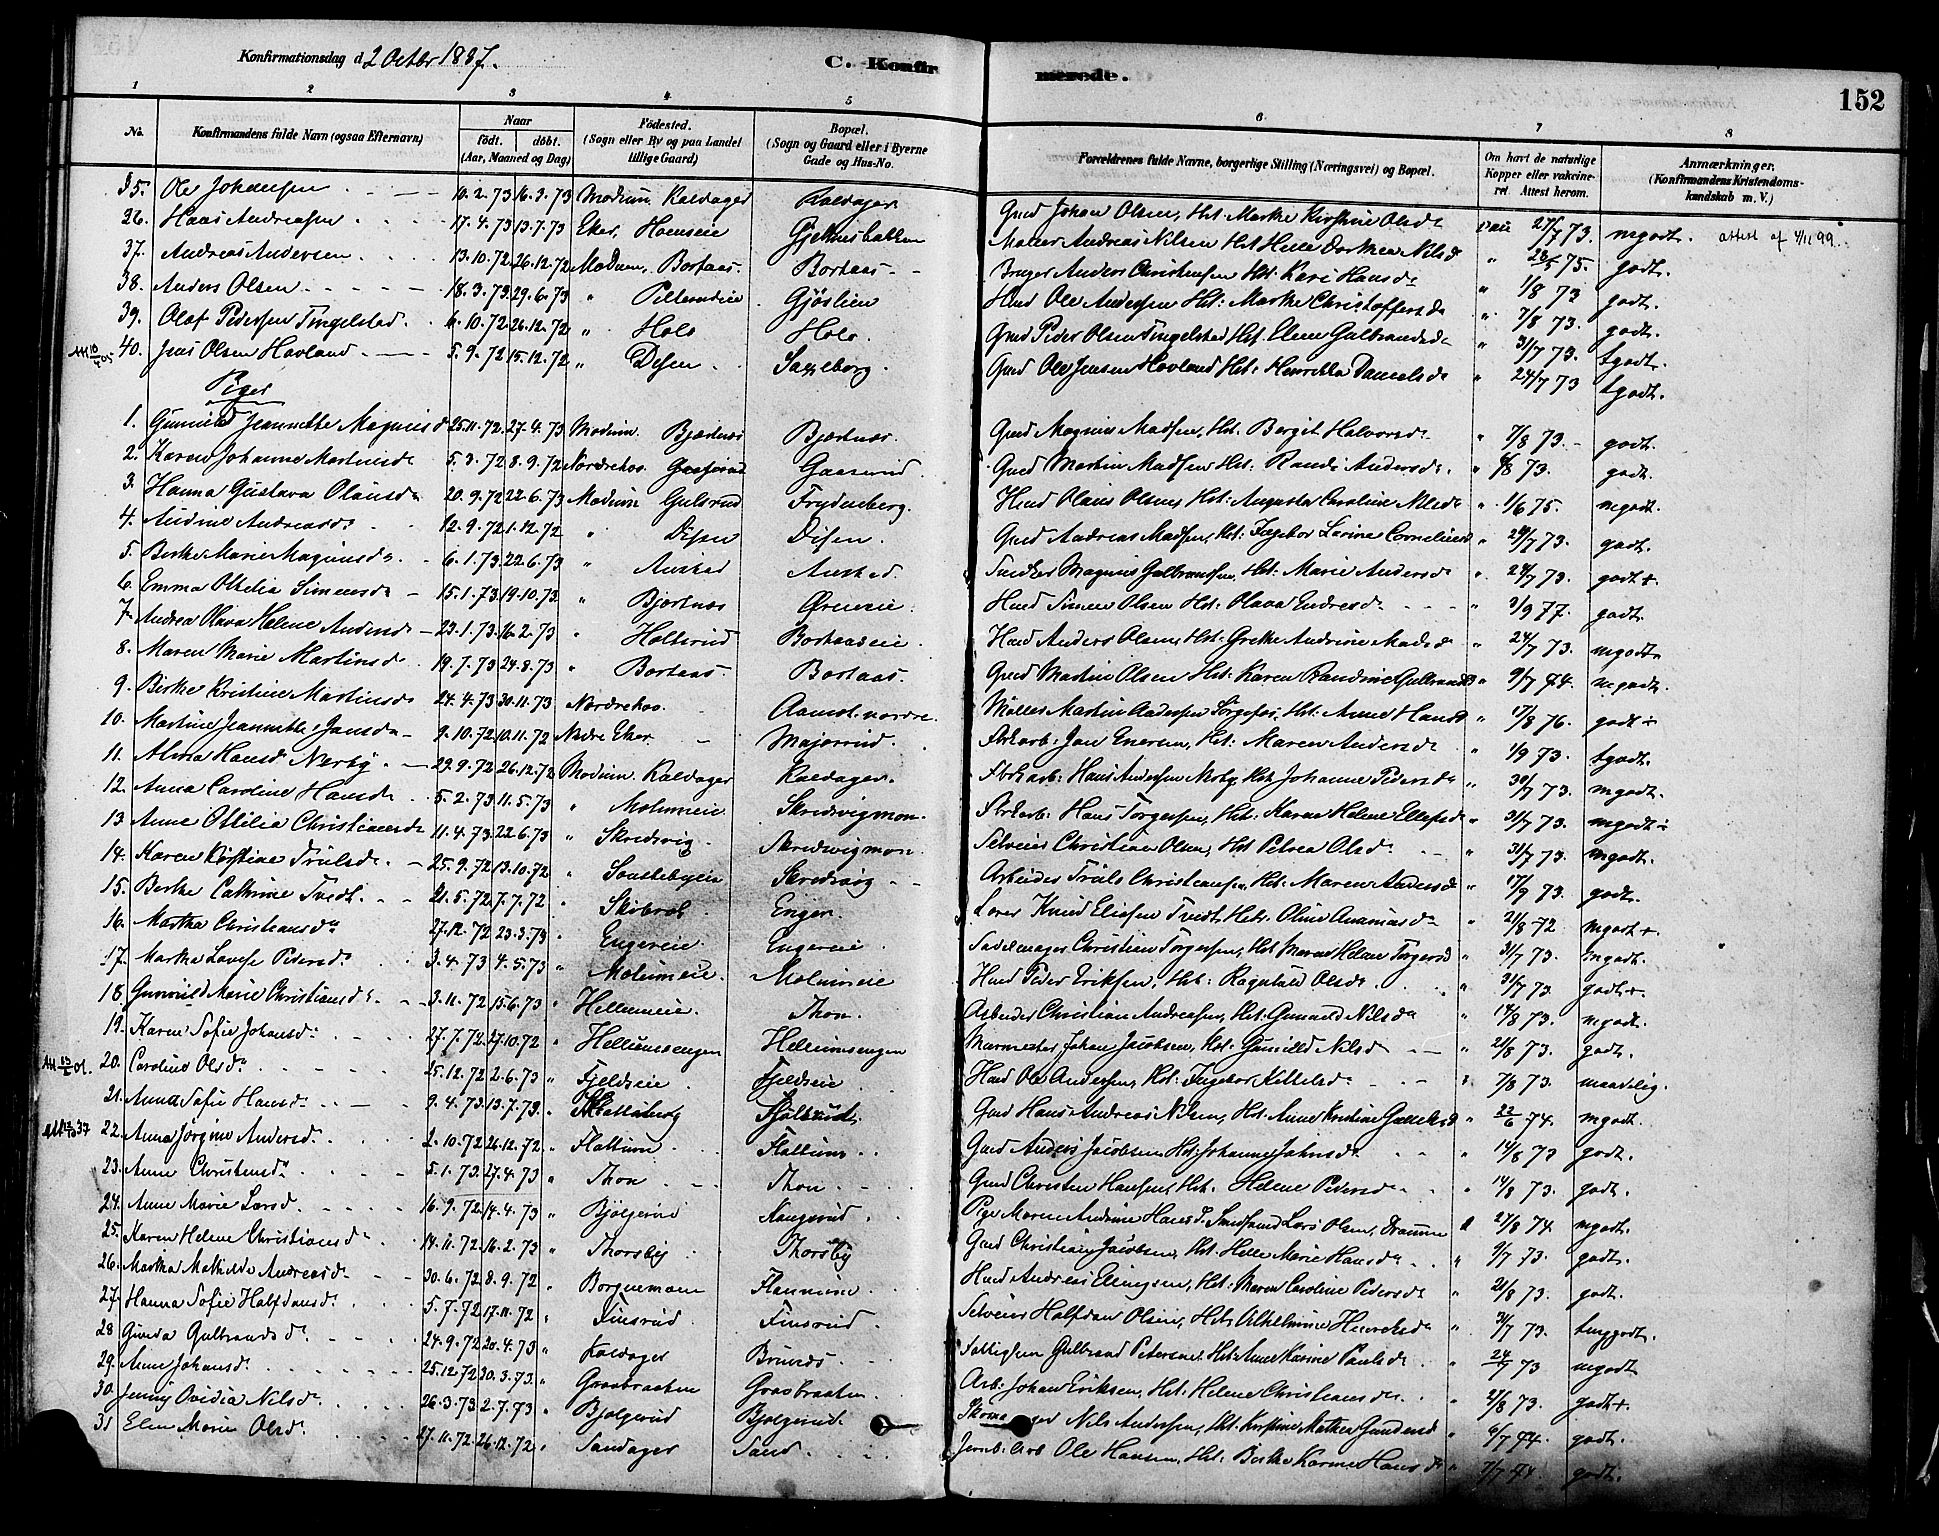 Konfirmationsdag d 2 Octbr 1887.
C. Konfir
merede.
152
1 2 3 4 5 6 7 8
No. Konfirmandens fulde Navn (ogsaa Efternavn) Naar født. døbt. (Aar, Maaned og Dag) Fødested. (Sogn eller By og paa Landet tillige Gaard) Bopæl. (Sogn og Gaard eller i Byerne Gade og Hus-No. Forældrenes fulde Navne, borgerlige Stilling (Næringsvei) og Bopæl. Om havt de naturlige Kopper eller vakcineret. Attest herom. Anmærkninger. (Konfirmandens Kristendomskundskab m. V.)
35. Ole Johansen 10.2.73 16.3.73 Modum Kaldager Kaldager Gmd Johan Olsen, Hst. Marthe Kirstine Olsdr 27/7 73. mgodt.
36. Hans Andreasen 17.4.73 13.7.73 Eker, Hoenseie Gjethusbakken Andreas Nilsen Hst Helle Dorthea Nilsd " 75. godt. attest af 4/11 99.
37. Andreas Andersen 13.10.72 26.12.72 Modum, Bortaas. Bortaas Bruger Anders Christensen Hst. Kari Hansd " 1/8 73 godt.
38. Anders Olsen 18.3.73 29.6.73 " Gjøslien Hmd Ole Andersen Hst: Marthe Christoffersd " 7/8 73. godt.
39. Olaf Pedersen Tingelstad 6.10.72 26.12.72 " Hole Hole. Gmd Peder Olsen Tingelstad Hst. Elene Gulbrandsd " 31/7 73. tgodt.
40. Jens Olsen Hovland 5.9.72 15.12.72 " Disen Saxeborg. Gmd Ole Jensen Hovland Hst: Henrikka Danielsd " 24/7 73 tgodt.
Piger
1. Gunhild Jeannette Magnusd 25.11.72 27.4.73 Modum. Bjertnæs Bjertnæs. Gmd Magnus Madsen, Hst. Bergit Halvorsd " 7/8 73. godt.
2. Karen Johanne Martinsd 5.3.72 8.9.72 Norderhov. Gaaserud Gmd Martin Madsen Hst: Randi Andersd " 73. godt.
3. Hanna Gustava Olausd 20.9.72 22.6.73 Modum Gulsrud Frydenberg. Hmd Olaus Olsen, Hst. Augusta Caroline Nilsd " 1/6 75. mgodt.
4. Andrine Andreasd 12.9.72 1.12.72 " Disen Disen. Gmd Andreas Madsen, Hst: Ingebor Lovine Corneliusd " 24/7 73. godt.
5. Berthe Marie Magnusd 6.1.73 22.6.73 " Aasted. Snedker Magnus Gulbrandsen, Hst. Marie Andersd " 24/7 73. godt +
6. Emma Othelia Simensd 15.1.73 19.10.73 " Bjertnæs Øreneie. Hmd Simen Olsen Hst. Olava Endresd " 3/9 77. godt.
7. Andrea Olava Helene Andersd 23.1.73 16.2.73 " Holterud Bortaaseie. Hmd Anders Olsen, Hst. Grethe Andrine Madsd " 24/7 73. mgodt
8. Maren Marie Martinsd 19.7.73 24.8.73 " Bortaas. Bortaas. Gmd Martin Olsen Hst: Karen Randine Gulbrandsd " 9/7 74. mgodt.
9. Berthe Kristine Martinsd 24.4.73 30.11.73 Norderhov. Aamot nordre. Møller Martin Andersen Hst: Anne Hansd " 17/8 76. godt ÷
10. Martine Jeannette Jansd 9.10.72 10.11.72 Nedre Eker Majorrud. Fbrkarb: Jan Enersen, Hst: Maren Andersd " 1/9 73. tgodt.
11. Alma Hansd Nerby 29.9.72 26.12.72 Modum. Kaldager Kaldager. Fbrkarb: Hans Andersen Nerby, Hst Johanne Pedersd " 30/7 73. mgodt.
12. Anna Caroline Hansd 5.2.73 11.5.73 " Molumeie Skredsvigmoen. Fbrkarb: Hans Torgersen, Hst: Karen Helene Ellefsd " 31/7 73. mgodt ÷
13. Anne Ottilia Christiansd 11.4.73 22.6.73 " Skredsvig. Skredsvigmoen Selveier Christian Olsen, Hst Petrea Olsd " 31/7 73. mgodt.
14. Karen Kirstine Trulsd 25.9.72 13.10.72 " Skredsvig Arbeider Truls Christiansen, Hst: Maren Andersd " 17/9 73. godt.
15. Berthe Cathrine Tvedt 21.5.72 7.7.72 " Enger. Lærer Knud Eliasen Tvedt, Hst. Oline Ananiasd " 21/8 72. mgodt +
16. Martha Christiansd 27.12.72 23.3.73 " Engereie. Engereie Sadelmager Christian Torgersen, Hst Maren Helene Torgersd " 31/7 73. mgodt.
17. Marthe Lovise Pedersd 3.4.73 4.5.73 " Molumeie. Molumeie Hmd Peder Eriksen, Hst: Ragnhild Olsd " 31/7 73 godt +
18. Gunhild Marie Christiansd 3.11.72 15.6.73 " Hellumeie. Thon. Arbeider Christian Andreasen, Hst: Gunhild Nilsd " 14/8 73. mgodt.
19. Karen Sofie Johansd 27.7.72 27.10.72 " Hellumsengen Hellumsengen Murmester Johan Jacobsen, Hst: Gunhild Nilsd " 21/8 73. godt.
20. Caroline Olsd. 25.12.72 2.6.73 " Fjeldseie Fjeldseie Hmd Ole Andersen, Hst: Ingebor Kittelsd " 7/8 73. maadelig.
21. Anna Sofie Hansd 9.4.73 13.7.73. " Gmd Hans Andreas Nilsen, Hst. Anne Kristine " 22/6 74. mgodt.
22. Anna Jørgine Andersd. 2.10.72 26.12.72 " Flattum. Flattum. Gmd Anders Jacobsen Hst: Johanne Johnsd " 14/8 73 godt.
23. Anne Christensd 5.1.73 27.4.73 " Thon Thon Gmd Christen Hansen, Hst. Helene Pedersd " 14/8 73. godt.
24. Anne Marie Larsd. 16.9.72 14.4.73 " Bjølgerud Kongerud. Pige Maren Andrine Hansd. Lars Olsen, Drammen " 27/8 74. mgodt.
25. Karen Helene Christiansd 14.11.72 16.2.73 " Thorsby Thorsby Gmd Christian Jacobsen, Hst: Helle Marie Hansd " 9/7 73. godt.
26. Martha Mathilde Andreasd 30.6.72 8.9.72 " Borgnemoen Hmd Andreas Ellingsen, Hst: Maren Caroline Pedersd " 21/8 73. godt.
27. Hanna Sofie Halfdansd. 5.7.72 17.11.72 " Finsrud. Finsrud. Selveier Halfdan Olsen, Hst. Vilhelmine Henriksd " 31/7 73. tmgodt.
28 Gunda Gulbrandsd. 24.9.72 20.4.73 " Kaldager Gulbrand Petersen Hst: Anne Karine Paulsd " 24/7 73 mgodt
29. Anne Johansd. 25.12.72 30.3.73. " Grosbraaten Grosbraaten. Arb. Johan Eriksen, Hst: Helene Christiansd 21/8 73. godt +.
30. Jenny Ovidia Nilsd 26.3.73 2.7.73 " Bjølgerud Bjølgerud. Nils Andersen, Hst. Kirstine Mathea Gundersd " 6/7 74. godt.
31 Elen Marie Olsd. 27.11.72 26.12.72 " Sandager Sand Jernb. Arb Ole Hansen, Hst: Berthe Karine Hansd " 7/7 74. godt.